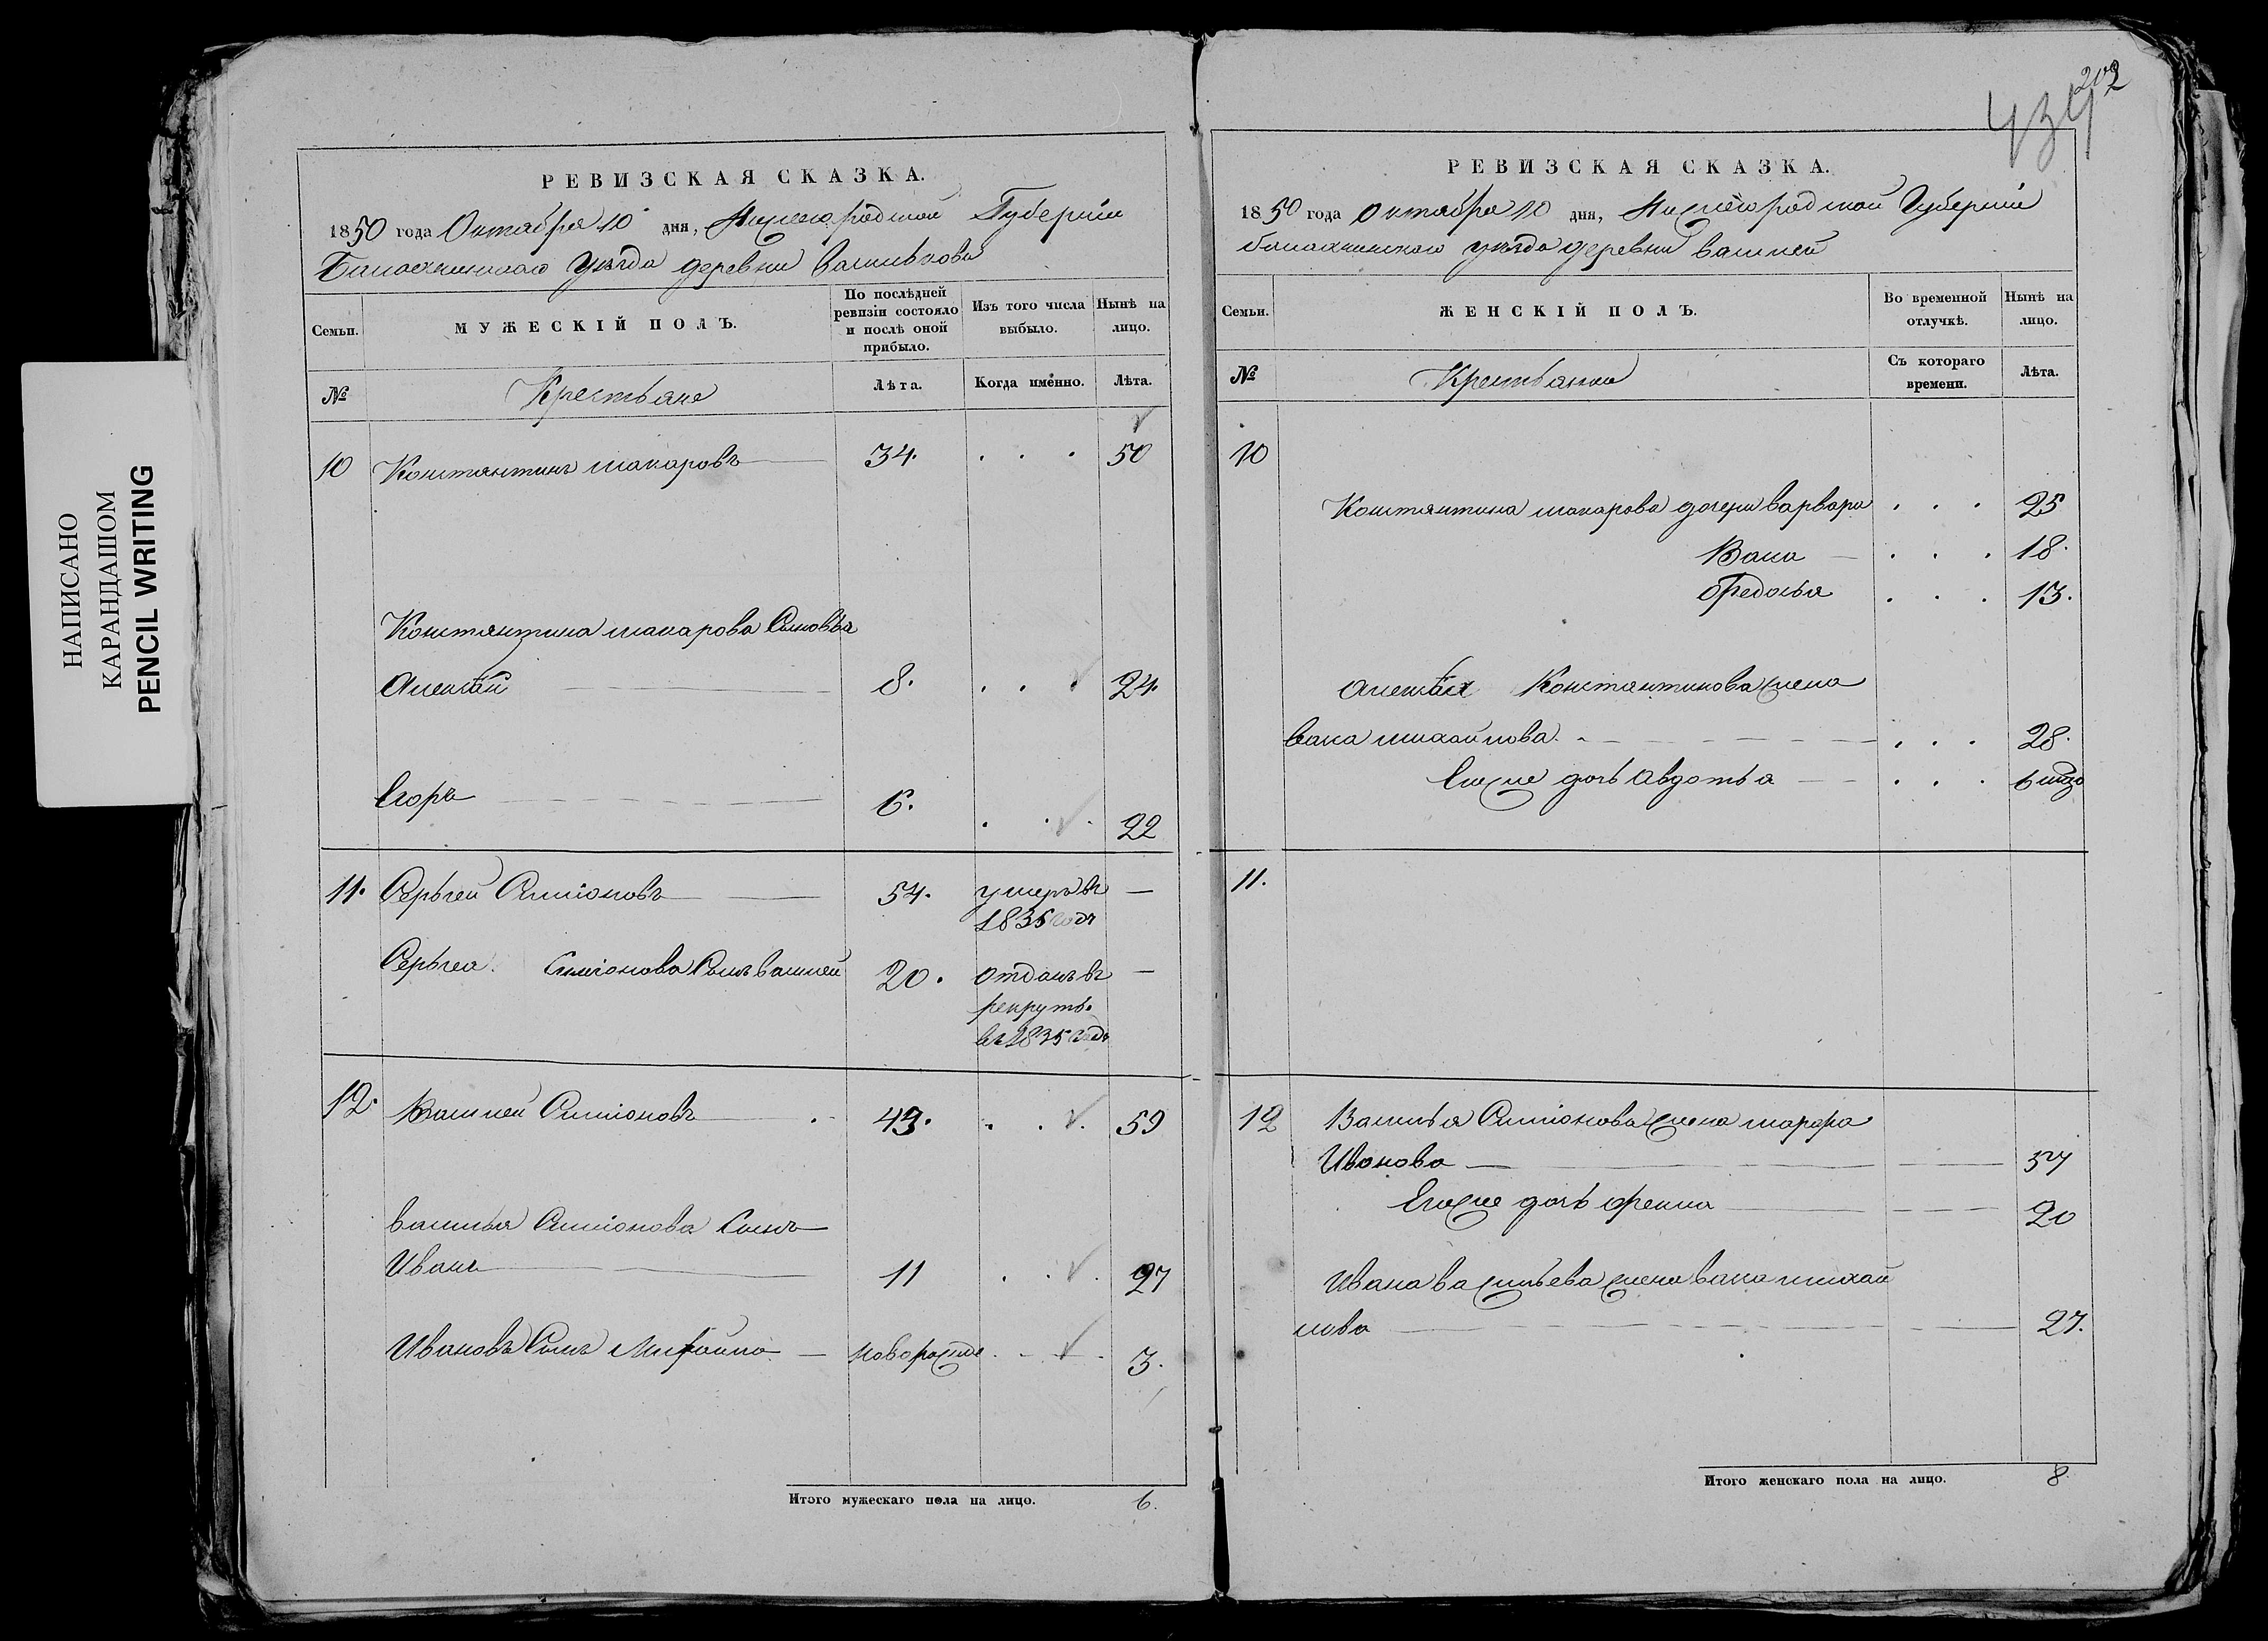 НАПИСАНО
КАРАНДАШОМ
PENCIL WRITING
РЕВИЗСКАЯ СКАЗКА.
1850 года Октября 10 дня, Нижегородской Губерніи
Балахнинскаго уезда деревни
Семьи.
МУЖЕСКІЙ ПОЛЪ.
По послѣдней ревизіи состояло и послѣ оной прибыло.
Изъ того числа выбыло.
Нынѣ на лицо.
№
Крестьяне
Лѣта.
Когда именно.
Лѣта.
10 Констянтинъ макаровъ 34. . . . 50
Констянтина макарова Сыновья
Алексѣй 8. . . . 24.
Егоръ 6. . . . 22
11. Серьгей Симіоновъ 54. умеръ въ —
1835 годѣ
Серьгея Симіонова Сынъ 20. отданъ въ —
рекруты
въ 1835 годѣ
12. Симіоновъ 43. . . . 59
василья Симіонова Сынъ
Иванъ 11 . . . 27
Ивановъ Сынъ новорожде 3.
Итого мужескаго пола на лицо. 6.
202
434
РЕВИЗСКАЯ СКАЗКА.
1850 года Октября 10 дня, Нижегородской Губерніи
балахнинскаго уезда деревни
Семьи.
ЖЕНСКІЙ ПОЛЪ.
Во временной отлучкѣ.
Нынѣ на лицо.
№
Крестьянки
Съ котораго времени.
Лѣта.
10
Констянтина макарова дочери варвара . . . 25
. . . 18.
Федосья . . . 13.
Алексѣя Констянтинова жена
михайлова . . . 28.
Егоже дочь Авдотья . . . 6
11.
12 Василья Симіонова жена марфа
Иванова 54
Егоже дочь 20
Ивана васильева жена михай
лова 27.
Итого женскаго пола на лицо. 8